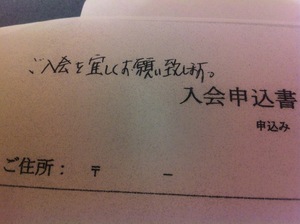 ご入会を宜しくお願い致します。
入会申込書
申込み
ご住所： 〒 －